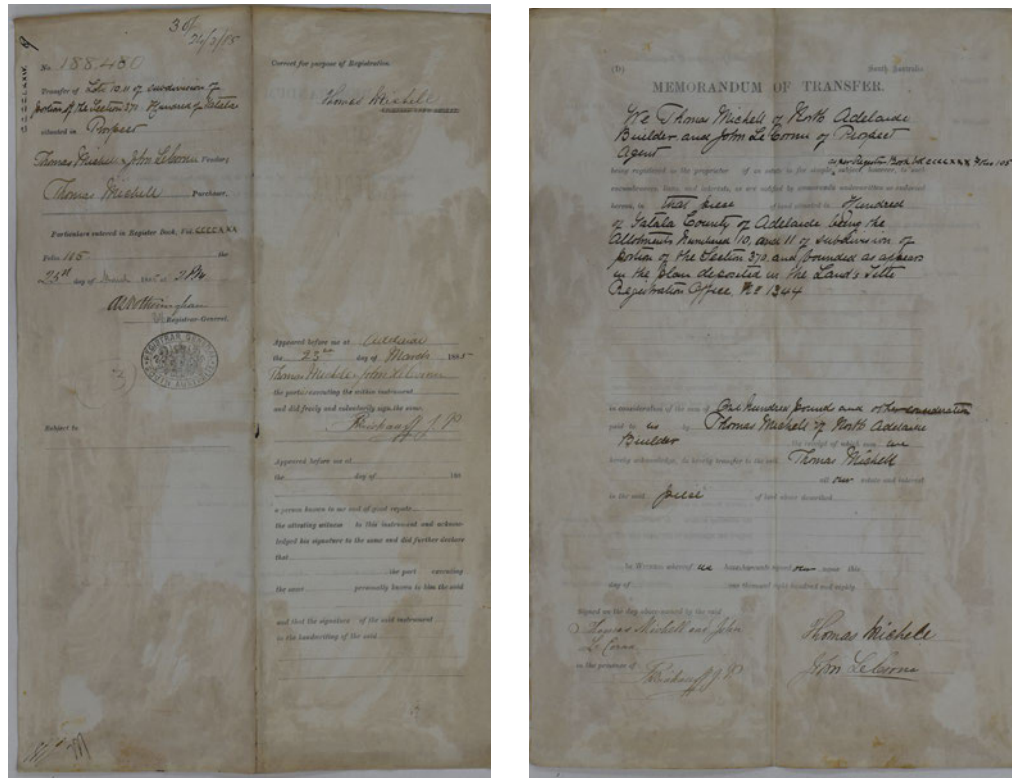 30/-
26/3/85
No. 188,480
Transfer of Lots 10.11 of subdivision of
portion of the Section 370. Hundred of Yatala
situated in Prospect
Thomas Michell & John LeCornu Vendor;
Thomas Michell Purchaser.
Particulars entered in Register Book, Vol. CCCCXXX
Folio 105 the
25th day of March 1885 at 2 PM
Registrar-General.
REGISTRAR GENERAL
SOUTH AUSTRALIA
Subject to
Correct for purpose of Registration.
Thomas Michell
Appeared before me at Adelaide
the 23rd day of March 1885
Thomas Michell & John LeCornu
the parties executing the within instrument
and did freely and voluntarily sign the same.
J.P.
Appeared before me at
the day of 188
a person known to me and of good repute
the attesting witness to this instrument and acknow-
ledged his signature to the same and did further declare
that
the part executing
the same personally known to him the said
and that the signature of the said instrument
in the handwriting of the said
(D) South Australia
MEMORANDUM OF TRANSFER.
We Thomas Michell of North Adelaide
Builder and John Le Cornu of Prospect
Agent
as per Register Book Vol CCCCXXX Folio 105
being registered as the proprietor of an estate in fee simple, subject, however, to such
encumbrances, liens, and interests, as are notified by memoranda underwritten or endorsed
hereon, in that piece of land situated in Hundred
of Yatala County of Adelaide being the
Allotments Numbered 10, and 11 of subdivision of
portion of the Section 370, and bounded as appears
in the plan deposited in the Land's Title
Registration Office No 1344
in consideration of the sum of One hundred pounds and other consideration
paid to us by Thomas Michell of North Adelaide
Builder the receipt of which sum we
hereby acknowledge, do hereby transfer to the said Thomas Michell
all our estate and interest
in the said piece of land above described
In Witness whereof we have hereunto signed our names this
day of one thousand eight hundred and eighty
Signed on the day above-named by the said
Thomas Michell and John
Le Cornu
in the presence of J.P
Thomas Michell
John LeCornu